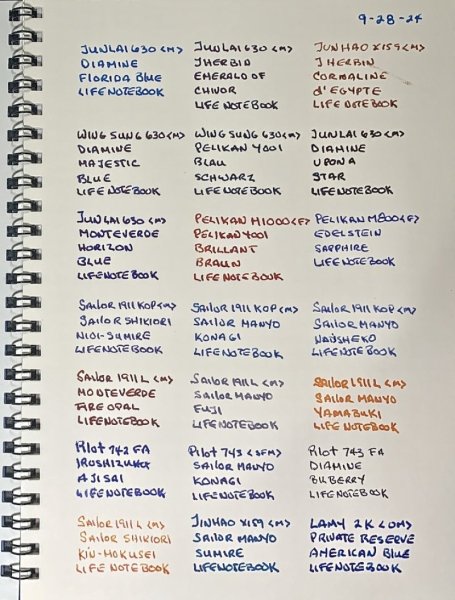 9-28-24
JUNLAI 630 <M>
DIAMINE
FLORIDA BLUE
LIFE NOTEBOOK
JUNLAI 630 <M>
JHERBIN
EMERALD OF
CHIVOR
LIFE NOTEBOOK
JUNHAO X159 <M>
JHERBIN
CORMALINE
d'EGYPTE
LIFE NOTEBOOK
WING SUNG 630 <M>
DIAMINE
MAJESTIC
BLUE
LIFE NOTEBOOK
WING SUNG 630 <M>
PELIKAN 4001
BLAU
SCHWARZ
LIFE NOTEBOOK
JUNLAI 630 <M>
DIAMINE
UPON A
STAR
LIFE NOTEBOOK
JUNLAI 630 <M>
MONTEVERDE
HORIZON
BLUE
LIFE NOTEBOOK
PELIKAN M1000 <F>
PELIKAN 4001
BRILLANT
BRAUN
LIFE NOTEBOOK
PELIKAN M800 <F>
EDELSTEIN
SAPPHIRE
LIFE NOTEBOOK
SAILOR 1911 KOP <M>
SAILOR SHIKIORI
NIOI-SUMIRE
LIFE NOTEBOOK
SAILOR 1911 KOP <M>
SAILOR MANYO
KONAGI
LIFE NOTEBOOK
SAILOR 1911 KOP <M>
SAILOR MANYO
LIFE NOTEBOOK
SAILOR 1911 L <M>
MONTEVERDE
FIRE OPAL
LIFE NOTEBOOK
SAILOR 1911 L <M>
SAILOR MANYO
FUJI
LIFE NOTEBOOK
SAILOR 1911 L <M>
SAILOR MANYO
YAMABUKI
LIFE NOTEBOOK
PILOT 742 FA
IROSHIZUKU
AJISAI
LIFE NOTEBOOK
PILOT 743 <SFM>
SAILOR MANYO
KONAGI
LIFE NOTEBOOK
PILOT 743 FA
DIAMINE
BILBERRY
LIFE NOTEBOOK
SAILOR 1911 L <M>
SAILOR SHIKIORI
KIN-MOKUSEI
LIFE NOTEBOOK
JINHAO X159 <M>
SAILOR MANYO
SUMIRE
LIFE NOTEBOOK
LAMY 2K <OM>
PRIVATE RESERVE
AMERICAN BLUE
LIFE NOTEBOOK